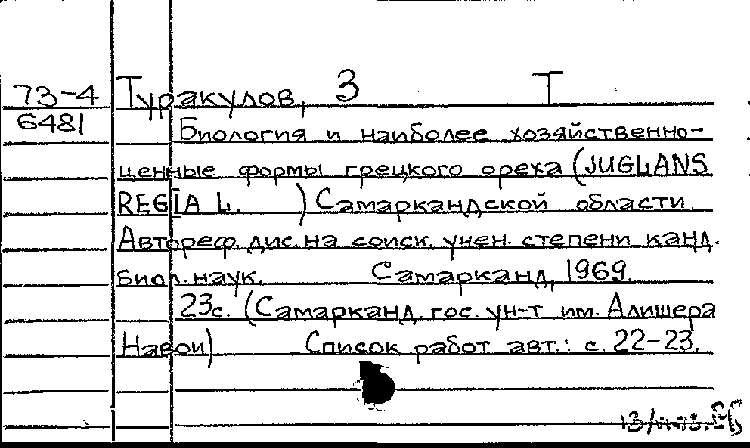 73-4 Туракулов, З Т
6481 Биология и наиболее хозяйственно-
ценные формы грецкого ореха (JUGLANS
REGIA L. ) Самаркандской области
Автореф. дис. на соиск. учен. степени канд.
биол. наук. Самарканд, 1969.
23с. (Самарканд. гос. ун-т им. Алишера
Навои) Список работ авт.: с. 22-23.